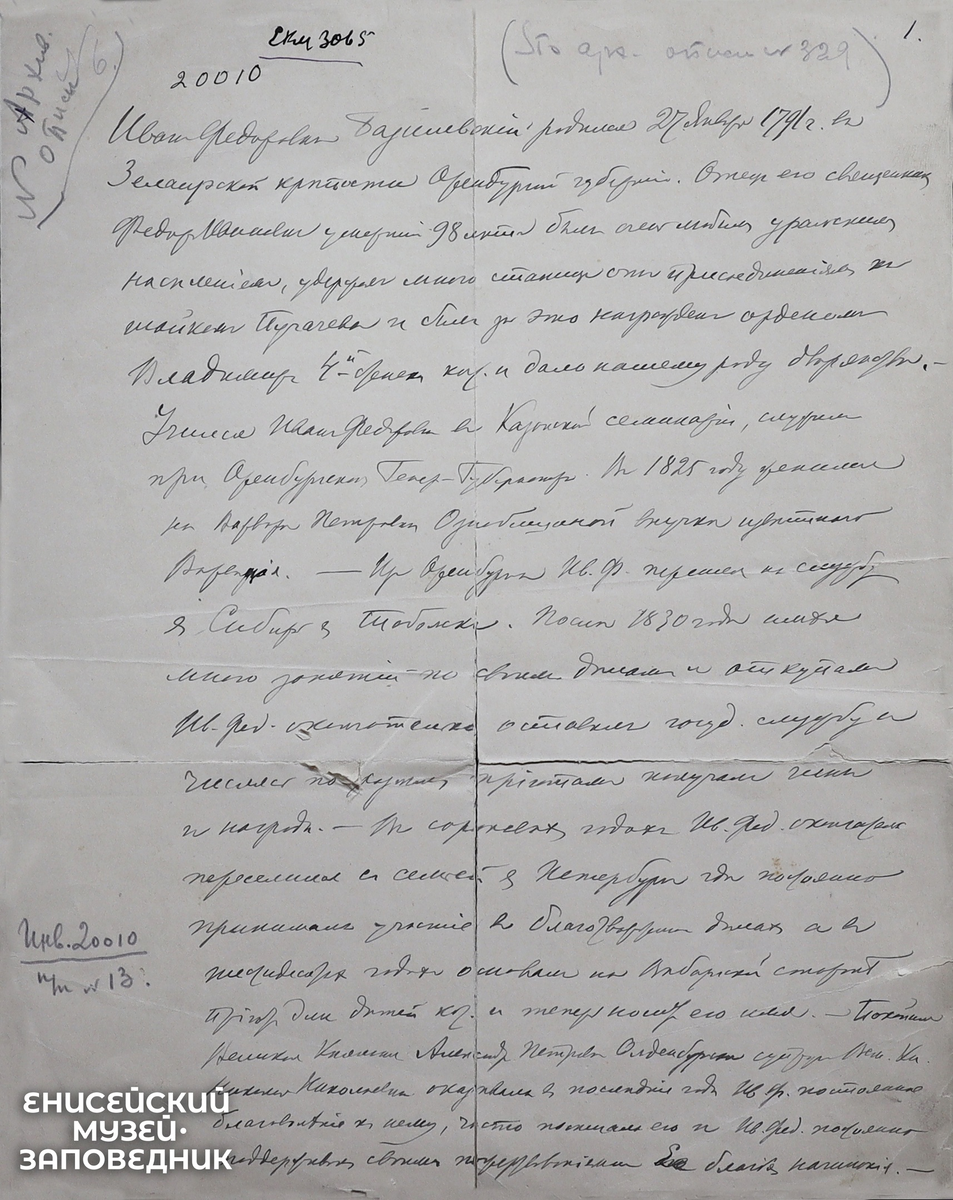 ЕКМ 3065
20010
№ Архив.
описи 6.
(Sto арх. описи № 329)
1.
Иван Федорович Базилевский родился 27 Января 1791 г. в
Зелаирской крѣпости Оренбургской губерніи. Отец его священник
Федор Иванович умерший 98 лѣт был очень любим уральским
населеніем, удержал много станиц от присоединенія к
шайкам Пугачева и был за это награжден орденом
Владимира 4й степени кот. и дал нашему роду дворянство. —
Учился Иван Федорович в Казанской семинаріи, служил
при Оренбургском Генер-Губернаторе. В 1825 году женился
на Варваре Петровне Ознобишиной внучке
— Из Оренбурга Ив. Ф. перешел на службу
в Сибирь в Тобольск. После 1830 года имея
много занятій по своим делам и откупам
Ив. Фед. окончательно оставил госуд. службу и
числясь по пріютам получал чины
и награды. — В сороковых годах Ив. Фед. окончательно
переселился с семьей в Петербург где постоянно
принимал участіе в благотворит. делах а в
шестидесятых годах основал на Выборгской стороне
Пріют для детей кот. и теперь носит его имя. — Покойная
Великая Княгиня Александра Петровна Ольденбургская супруга Вел. Кн.
Николая Николаевича оказывала в последніе годы Ив. Ф. постоянное
благоволеніе к нему, часто посещала его и Ив. Фед. постоянно
поддерживал своими пожертвованіями Ее благія начинанія. —
Инв. 20010
п/п № 13.
ЕНИСЕЙСКИЙ
МУЗЕЙ·
ЗАПОВЕДНИК